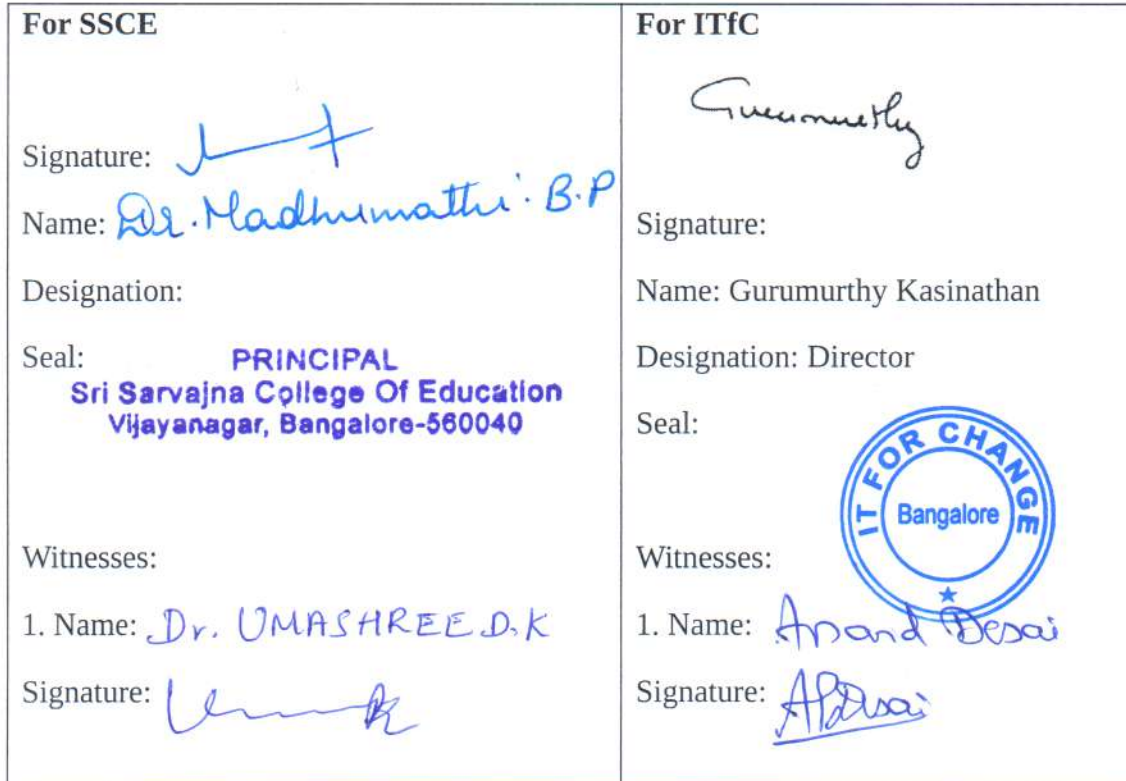 For SSCE
Signature:
Name: Dr. Madhumathi. B.P
Designation:
Seal:
PRINCIPAL
Sri Sarvajna College Of Education
Vijayanagar, Bangalore-560040
Witnesses:
1. Name: Dr. UMASHREE D.K
Signature:
For ITfC
Gurumurthy
Signature:
Name: Gurumurthy Kasinathan
Designation: Director
Seal:
IT FOR CHANGE
Bangalore
Witnesses:
1. Name: Anand Desai
Signature: APDesai